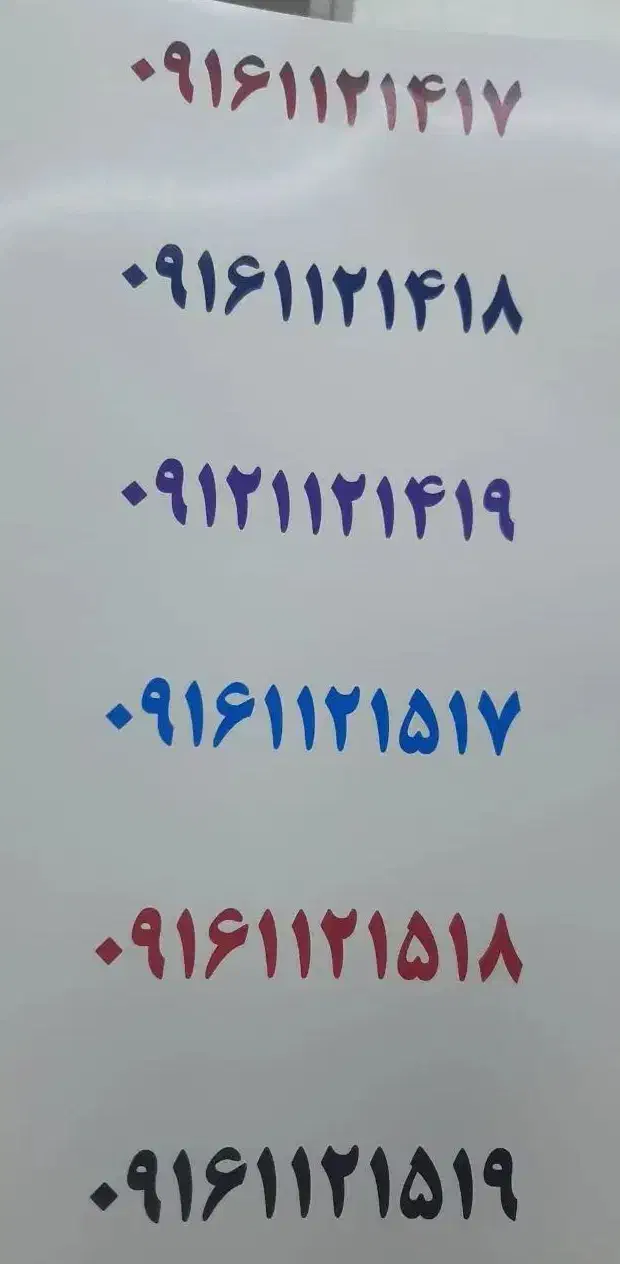 ۰۹۱۶۱۱۲۱۴۱۷
۰۹۱۶۱۱۲۱۴۱۸
۰۹۱۲۱۱۲۱۴۱۹
۰۹۱۶۱۱۲۱۵۱۷
۰۹۱۶۱۱۲۱۵۱۸
۰۹۱۶۱۱۲۱۵۱۹